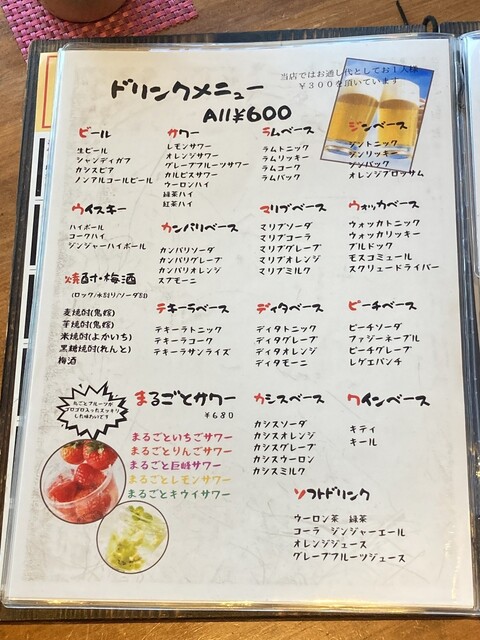 ドリンクメニュー
All¥600
当店ではお通し代としてお1人様
¥300を頂いています
ビール
生ビール
シャンディガフ
カシスビア
ノンアルコールビール
サワー
レモンサワー
オレンジサワー
グレープフルーツサワー
カルピスサワー
ウーロンハイ
緑茶ハイ
紅茶ハイ
ラムベース
ラムトニック
ラムリッキー
ラムコーク
ラムバック
ジンベース
ジントニック
ジンリッキー
ジンバック
オレンジブロッサム
ウイスキー
ハイボール
コークハイ
ジンジャーハイボール
カンパリベース
カンパリソーダ
カンパリグレープ
カンパリオレンジ
スプモーニ
マリブベース
マリブソーダ
マリブコーラ
マリブグレープ
マリブオレンジ
マリブミルク
ウォッカベース
ウォッカトニック
ウォッカリッキー
ブルドック
モスコミュール
スクリュードライバー
焼酎・梅酒
(ロック/水割り/ソーダ割)
麦焼酎(鬼嫁)
芋焼酎(鬼嫁)
米焼酎(よかいち)
黒糖焼酎(れんと)
梅酒
テキーラベース
テキーラトニック
テキーラコーク
テキーラサンライズ
ディタベース
ディタトニック
ディタグレープ
ディタオレンジ
ディタモーニ
ピーチベース
ピーチソーダ
ファジーネーブル
ピーチグレープ
レゲエパンチ
丸ごとフルーツが
ゴロゴロ入ったスッキリ
した味わいです
まるごとサワー
¥680
まるごといちごサワー
まるごとりんごサワー
まるごと巨峰サワー
まるごとレモンサワー
まるごとキウイサワー
カシスベース
カシスソーダ
カシスオレンジ
カシスグレープ
カシスウーロン
カシスミルク
ワインベース
キティ
キール
ソフトドリンク
ウーロン茶 緑茶
コーラ ジンジャーエール
オレンジジュース
グレープフルーツジュース